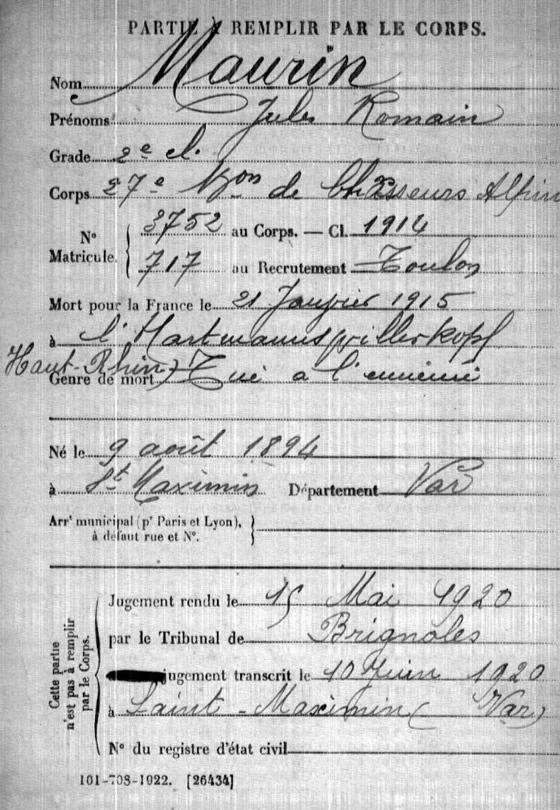 PARTIE A REMPLIR PAR LE CORPS.
Nom Maurin
Prénoms Jules Romain
Grade 2e cl.
Corps 27e Bon de Chasseurs Alpin
N° Matricule. 3752 au Corps. — Cl. 1914
717 au Recrutement Toulon
Mort pour la France le 21 Janvier 1915
à l'Hartmannswillerkopf
(Haut-Rhin)
Genre de mort Tué à l'ennemi
Né le 9 août 1894
à St Maximin Département Var
Arrt municipal (pr Paris et Lyon),
à défaut rue et N°.
Cette partie n'est pas à remplir par le Corps.
Jugement rendu le 15 Mai 1920
par le Tribunal de Brignoles
jugement transcrit le 10 Juin 1920
à Saint-Maximin (Var)
N° du registre d'état civil
101-708-1922. [26434]